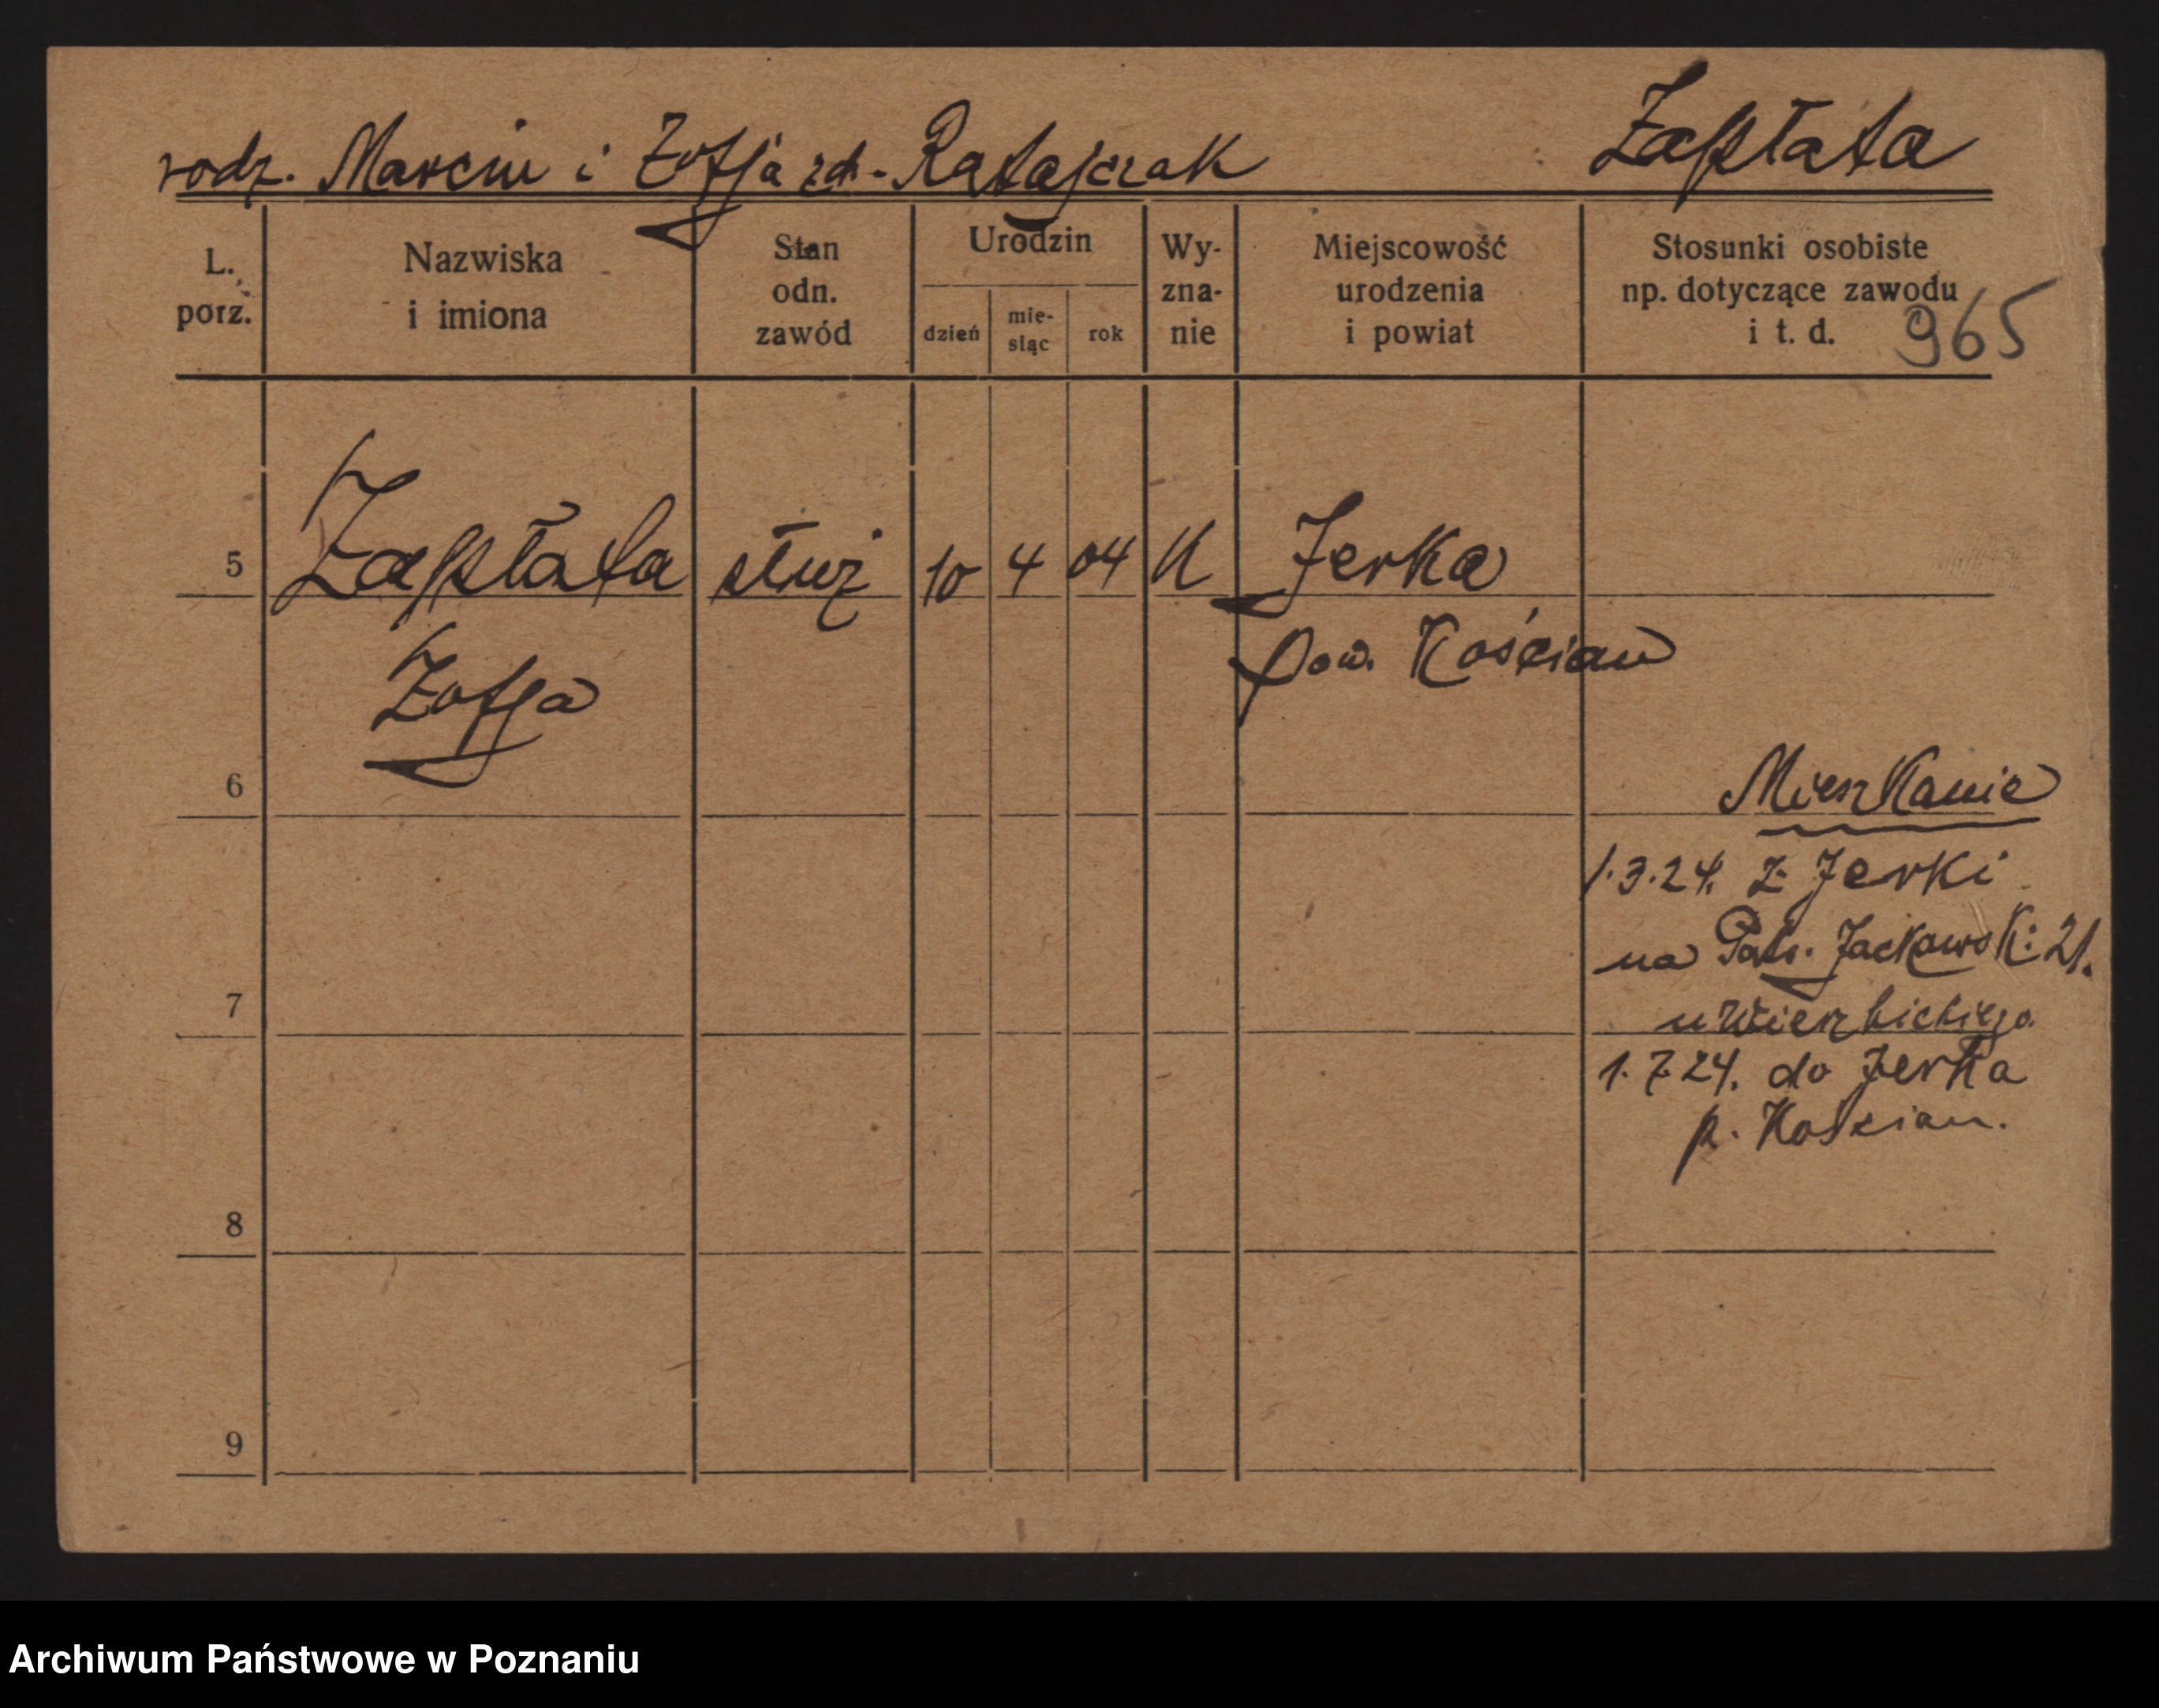 rodz. Marcin i Zofja zd. Ratajczak
Zapłata
L. porz.
Nazwiska i imiona
Stan odn. zawód
Urodzin
dzień
mie- siąc
rok
Wy- zna- nie
Miejscowość urodzenia i powiat
Stosunki osobiste np. dotyczące zawodu i t. d.
965
5 Zapłata służ 10 4 04 K Jerka
Zofja pow. Kościan
6
Mieszkanie
1.3.24. z Jerki
na Jackowsk: 21.
7
u Wierzbickiego.
1.7.24. do Jerka
p. Kościan.
8
9
Archiwum Państwowe w Poznaniu